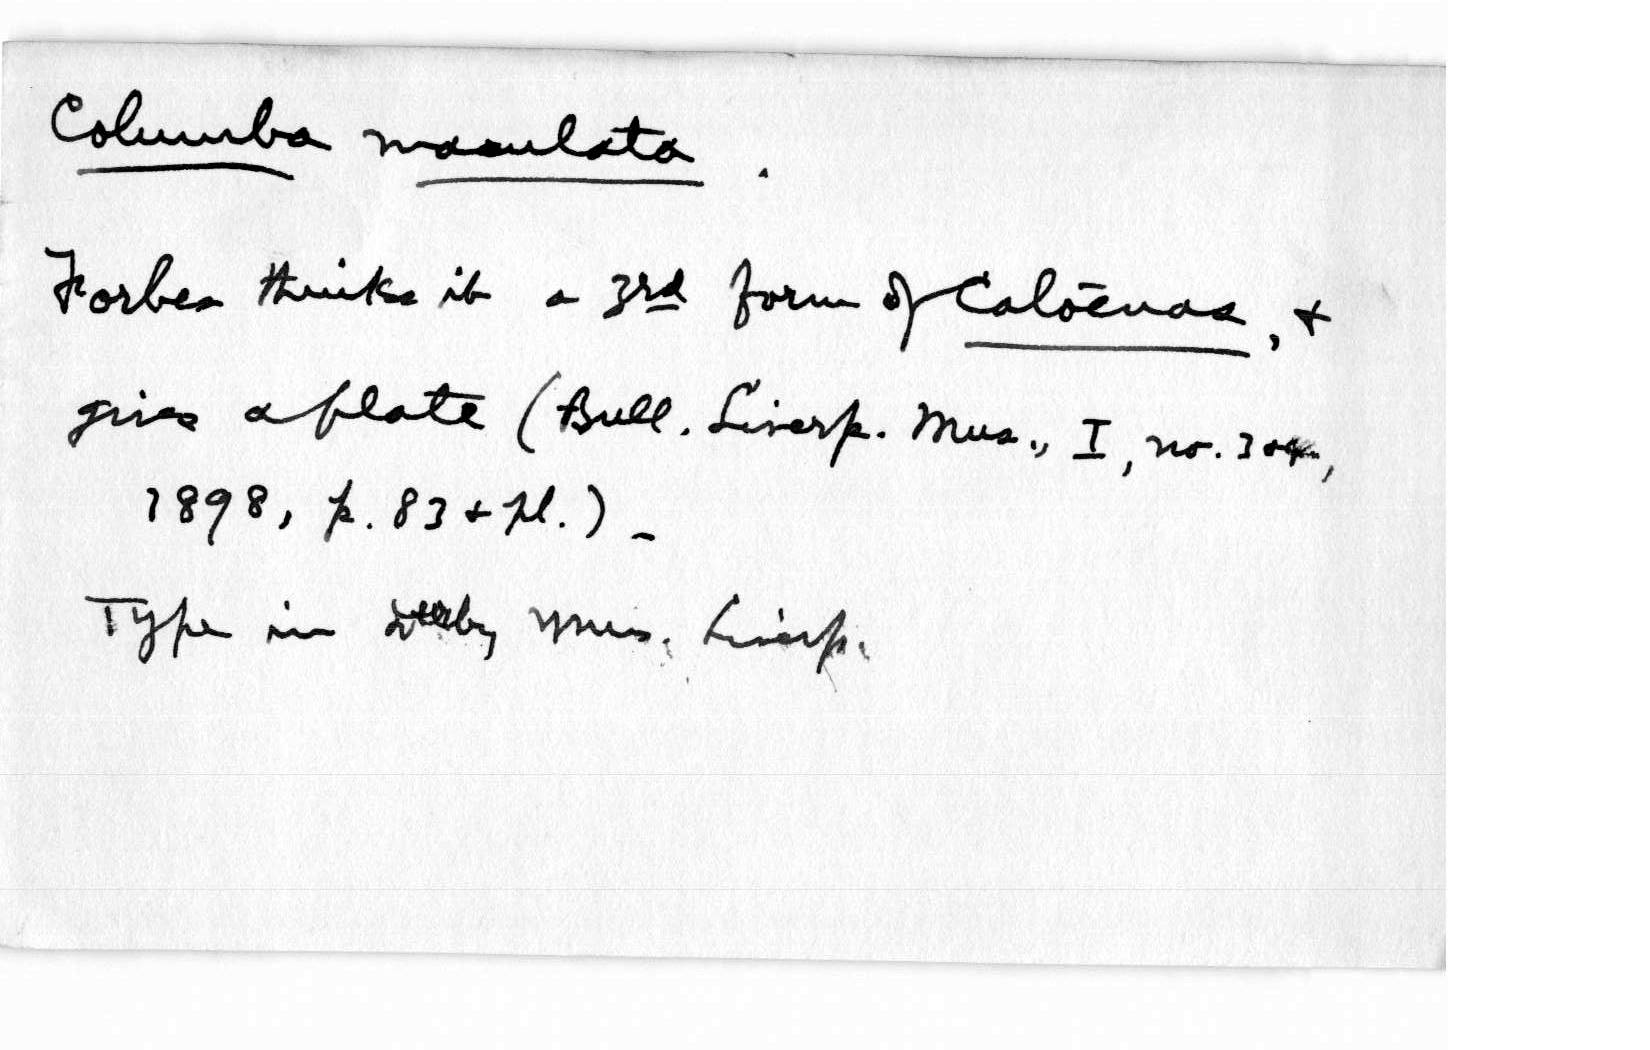 Columba maculata.
Forbes thinks it a 3rd form of Caloenas, +
gives a plate (Bull. Liverp. Mus., I, no. 3 + 4,
1898, p. 83 + pl.) -
Type in Derby Mus. Liverp.